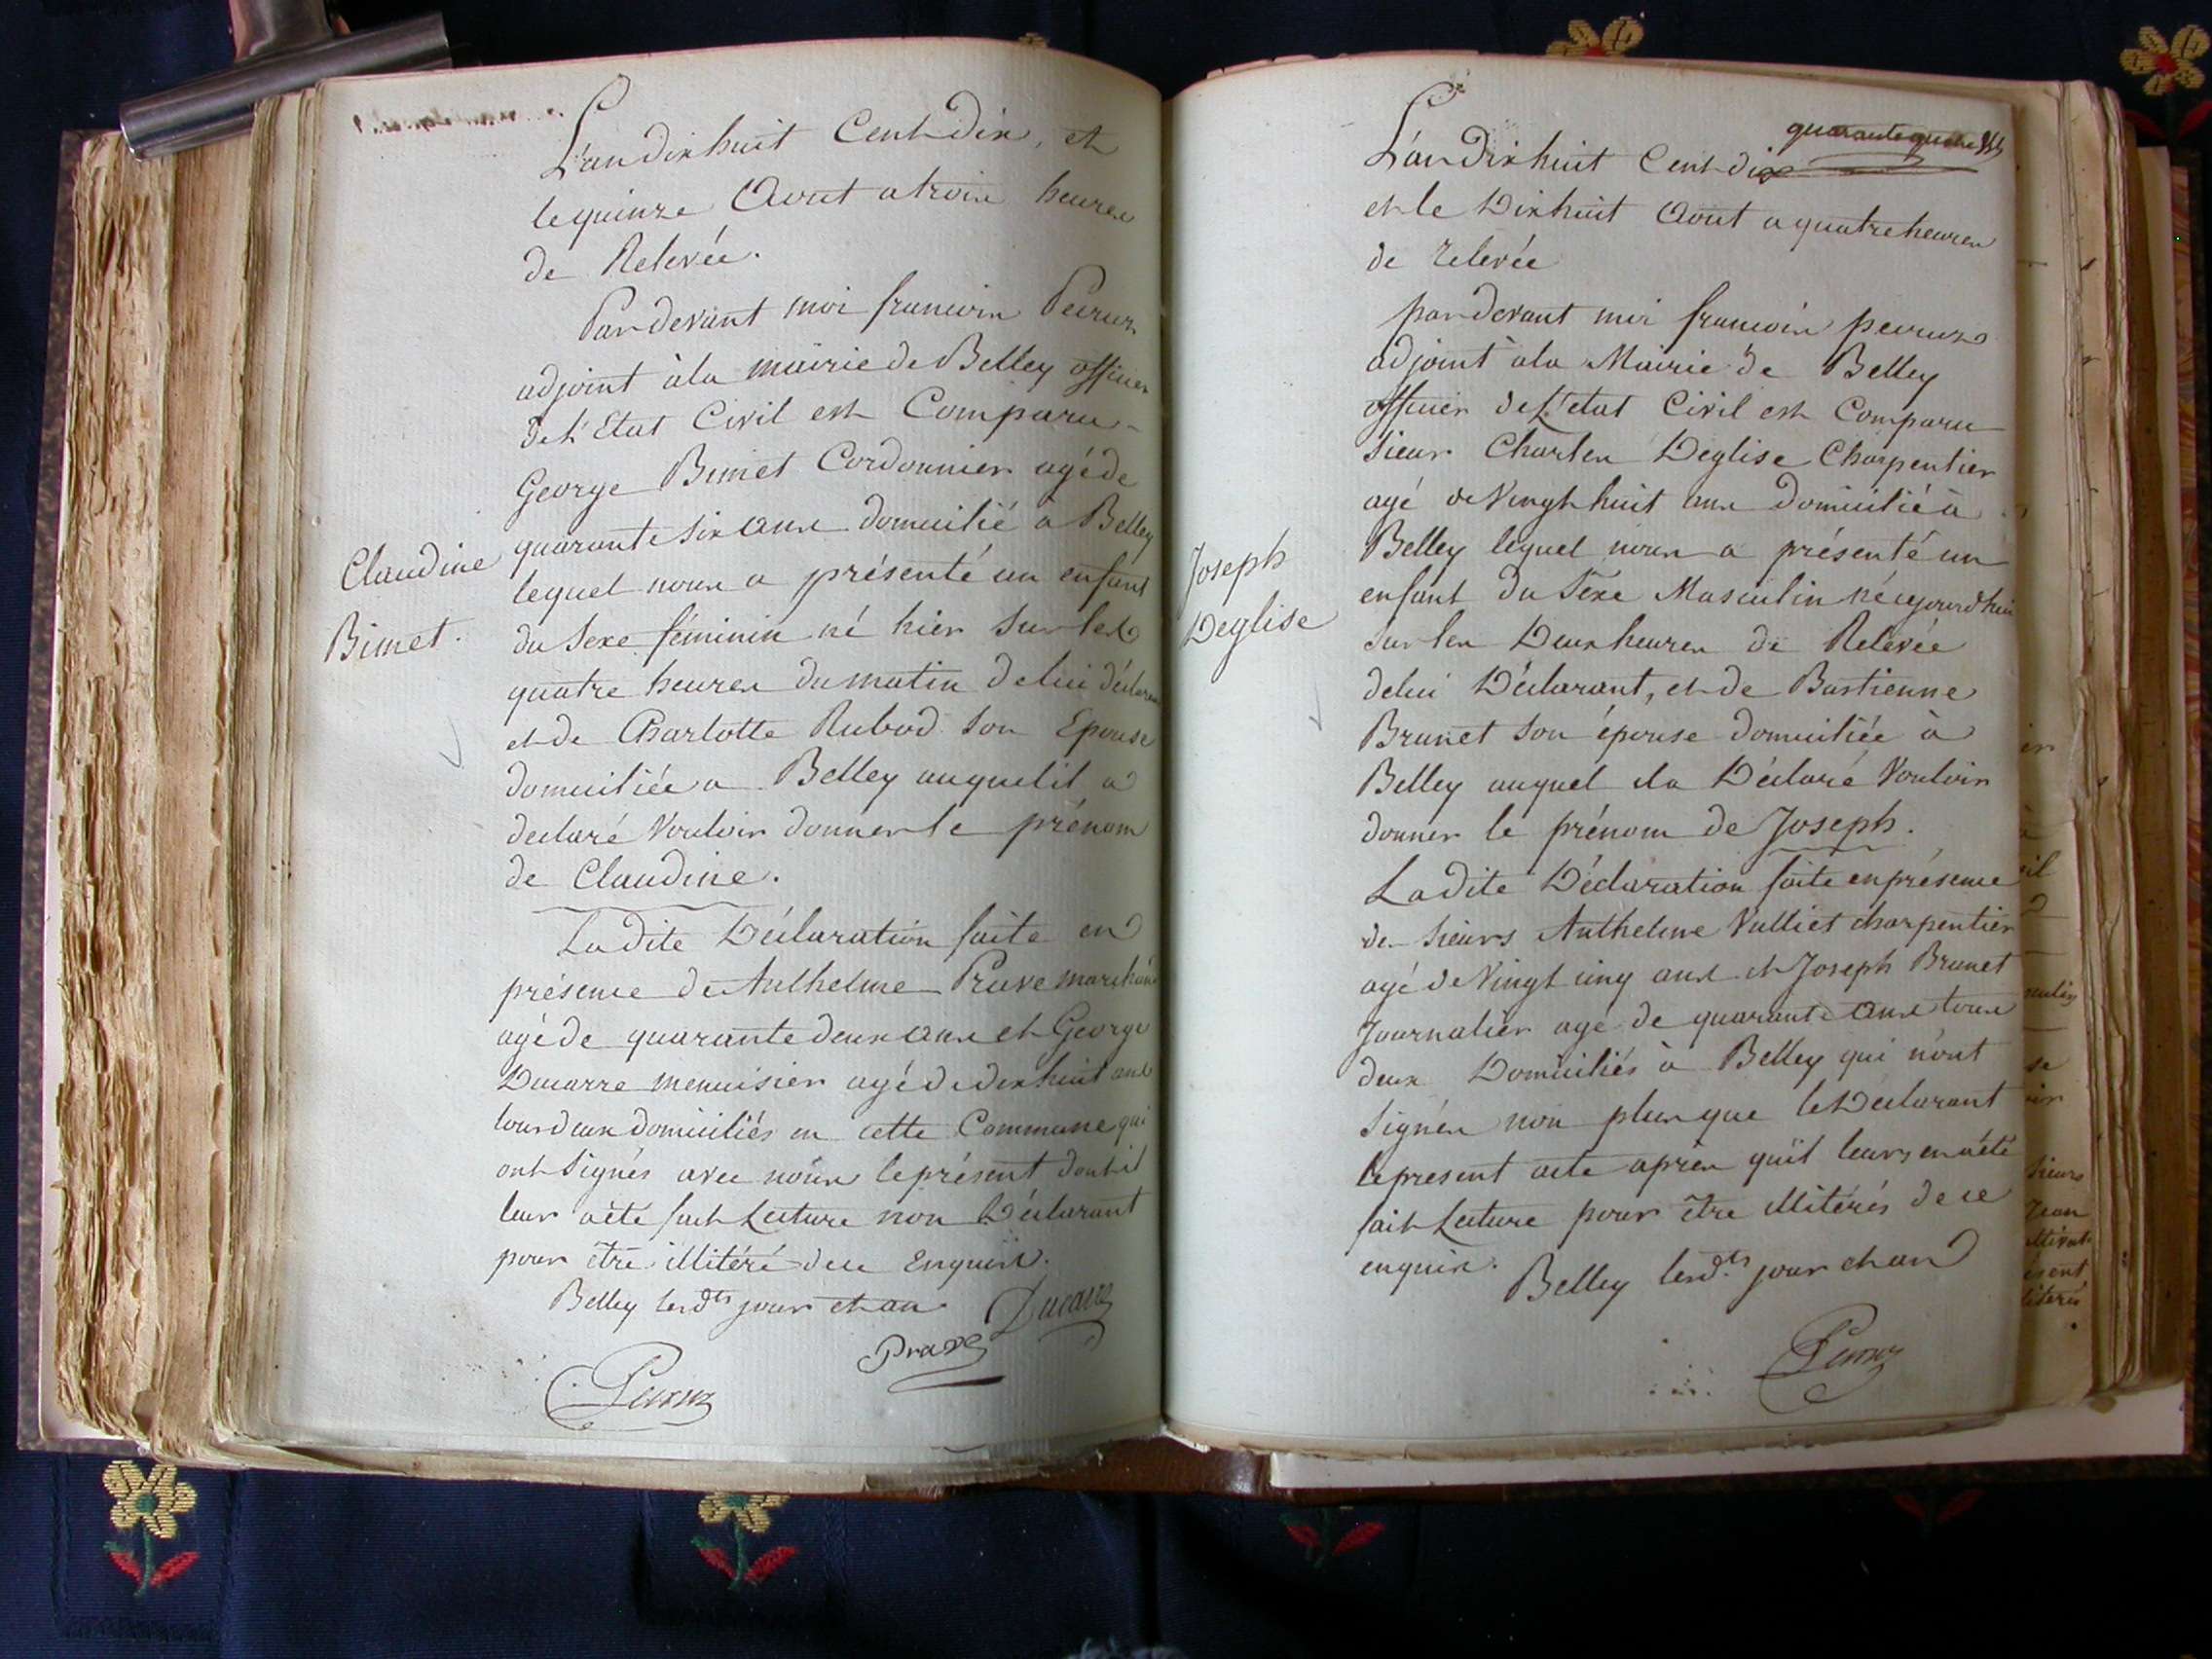 L'an dix huit Cent dix, et
le quinze Aout a trois heures
de Relevée.
Par devant moi francois Peizun
adjoint à la mairie de Belley officier
de L'Etat Civil est Comparu
George Bimet Cordonnier agé de
quarante six ans domicilié à Belley
Claudine
Bimet.
lequel nous a présenté un enfant
du Sexe féminin né hier sur les
quatre heures du matin de lui déclarant
et de Charlotte Rubod son Epouse
domiciliée a Belley auquel il a
declaré Vouloir donner le prénom
de Claudine.
La dite Déclaration faite en
présence de Anthelme Prave marchand
agé de quarante deux ans et George
Ducarre menuisier agé de dix huit ans
tous deux domiciliés en cette Commune qui
ont signés avec nous le présent dont il
leur a été fait Lecture non Déclarant
pour être illitéré de ce Enquis.
Belley lesdts jour et an
Ducarre
Prave
quarante quatre 44
L'an Dix huit Cent dix
et le Dix huit Aout a quatre heures
de relevée
par devant moi francois
adjoint à la Mairie de Belley
officier de L'etat Civil est Comparu
sieur Charles Deglise Charpentier
agé de Vingt huit ans Domicilié à
Joseph
Deglise
Belley lequel nous a présenté un
enfant du Sexe Masculin né aujourd'hui
sur les Deux heures de Relevée
de lui Déclarant, et de Bastienne
Brunet son épouse domiciliée à
Belley auquel il a Déclaré Vouloir
donner le prénom de Joseph.
La dite Déclaration faite en présence
de sieurs Anthelme Vulliet charpentier
agé de Vingt cinq ans et Joseph Brunet
Journalier agé de quarante ans tous
deux Domiciliés à Belley qui n'ont
signés non plus que le Déclarant
le present acte après qu'il leurs en a été
fait Lecture pour être illitérés de ce
enquis.
Belley lesd.ts jour et an